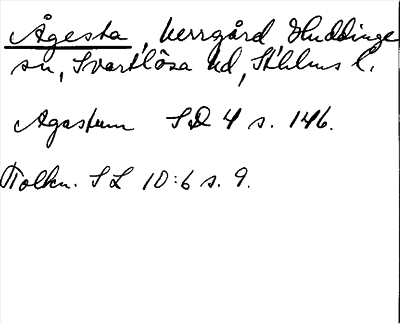 Ågesta, herrgård Huddinge
sn, Svartlösa hd, Sthlms l.
Agastum SD 4 s. 146.
Tolkn. SL 10:6 s. 9.